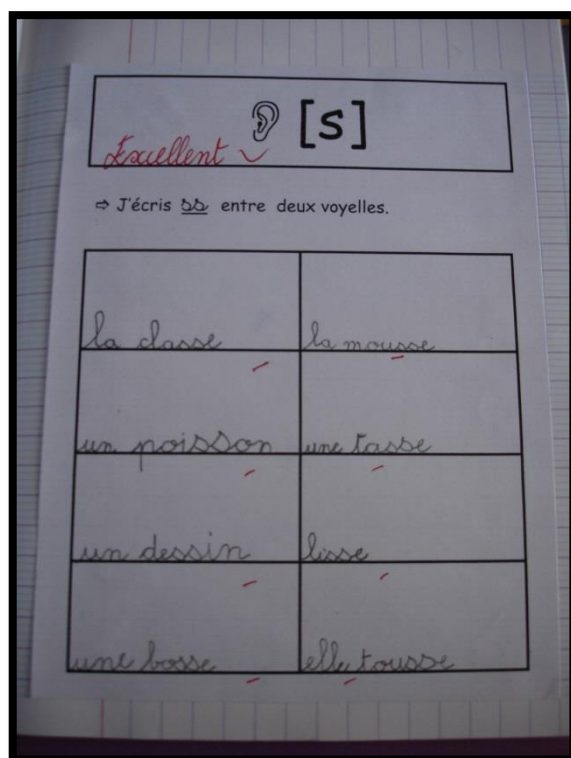 [s]
Excellent
⇨ J'écris ss entre deux voyelles.
la classe
la mousse
un poisson
une tasse
un dessin
lisse
une bosse
elle tousse